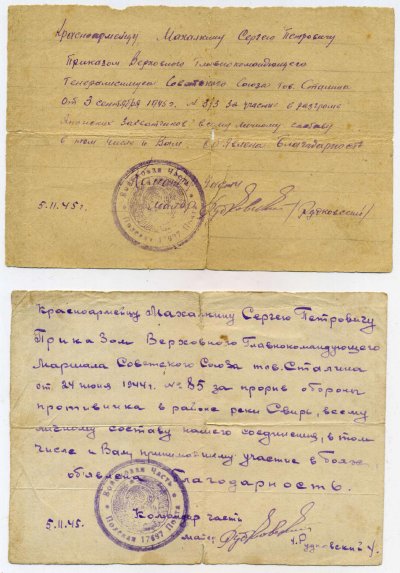 Красноармейцу Махалкину Сергею Петровичу
Приказом Верховного Главнокомандующего
Генералиссимуса Советского Союза тов. Сталина
От 3 сентября 1945 г. № 373 за участие в разгроме
Японских Захватчиков всему личному составу
в том числе и Вам объявлена Благодарность
части
Войсковая Часть
Полевая 17697 Почта
5.11.45г.
(Рудковский)
Красноармейцу Махалкину Сергею Петровичу
Приказом Верховного Главнокомандующего
Маршала Советского Союза тов. Сталина
от 24 июня 1944г. №85 за прорыв обороны
противника в районе реки Свирь, всему
личному составу нашего соединения, в том
числе и Вам, принимавшему участие в боях,
объявлена благодарность.
Войсковая Часть
Полевая 17697 Почта
Командир части
5.11.45.
майор
/Рудковский/